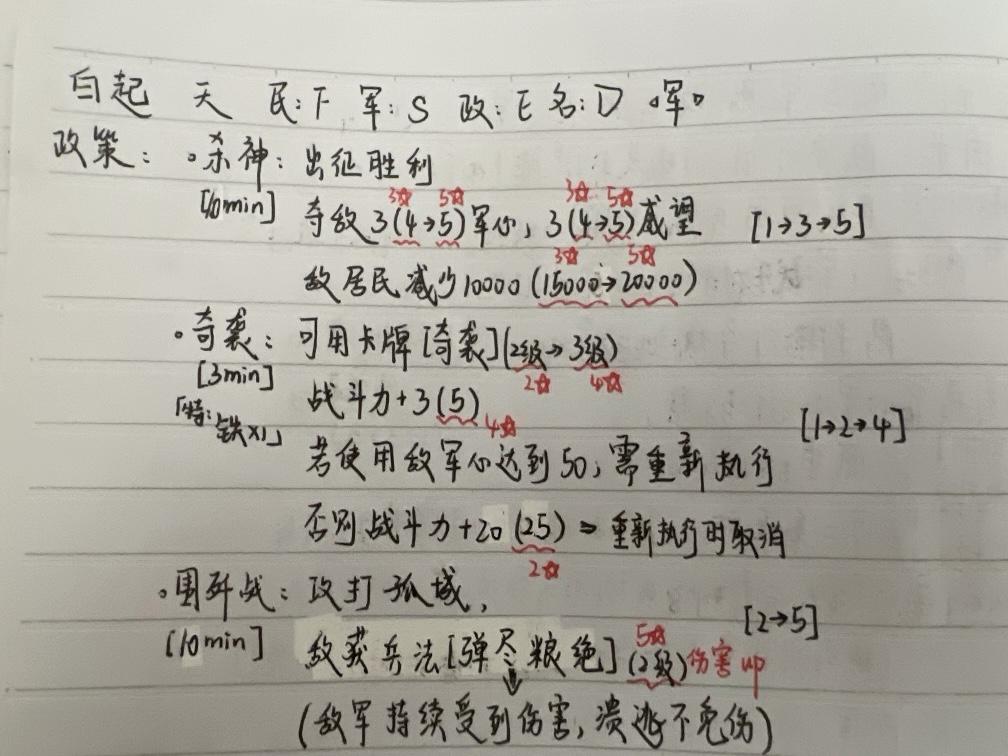 白起 天 民:F 军:S 政:E 名:D 。军。
政策: 。杀神: 出征胜利
3☆ 5☆ 3☆ 5☆
[10min] 夺敌3(4→5)军心, 3(4→5)威望 [1→3→5]
3☆ 5☆
敌居民减少10000(15000→20000)
。奇袭: 可用卡牌[奇袭](2级→3级)
2☆ 4☆
[3min] 战斗力+3(5)
4☆
「特: 铁×1」 [1→2→4]
若使用敌军心达到50, 需重新执行
否则战斗力+20(25) ⇒ 重新执行时取消
2☆
。围歼战: 攻打孤城, [2→5]
5☆
[10min] 敌获兵法[弹尽粮绝](2级)伤害up
(敌军持续受到伤害, 溃逃不免伤)